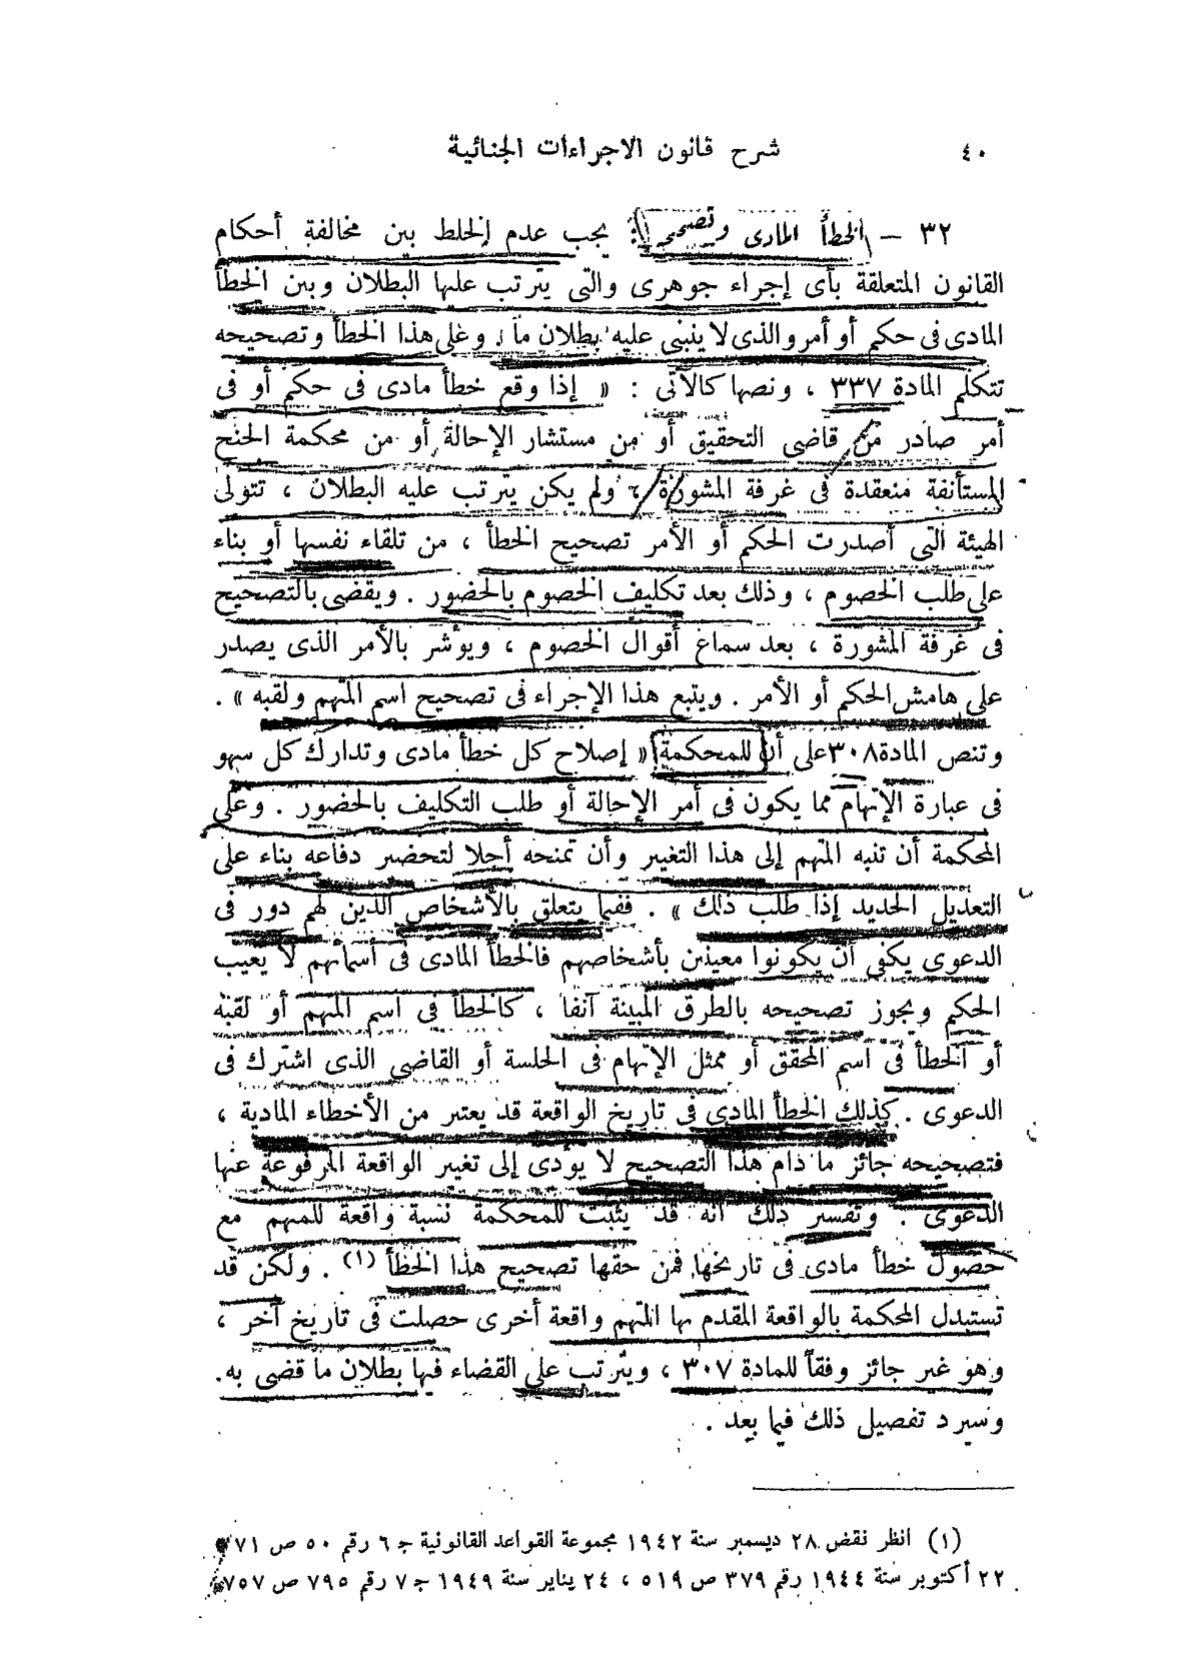 ٤٠
شرح قانون الاجراءات الجنائية
٣٢ – الخطأ المادى وتصحيحه : يجب عدم الخلط بين مخالفة أحكام
القانون المتعلقة بأى إجراء جوهرى والتى يترتب عليها البطلان وبين الخطأ
المادى فى حكم أو أمر والذى لا ينبنى عليه بطلان ما ، وعلى هذا الخطأ وتصحيحه
تتكلم المادة ٣٣٧ ، ونصها كالآتى : « إذا وقع خطأ مادى فى حكم أو فى
أمر صادر من قاضى التحقيق أو من مستشار الإحالة أو من محكمة الجنح
المستأنفة منعقدة فى غرفة المشورة ، ولم يكن يترتب عليه البطلان ، تتولى
الهيئة التى أصدرت الحكم أو الأمر تصحيح الخطأ ، من تلقاء نفسها أو بناء
على طلب الخصوم ، وذلك بعد تكليف الخصوم بالحضور . ويقضى بالتصحيح
فى غرفة المشورة ، بعد سماع أقوال الخصوم ، ويؤشر بالأمر الذى يصدر
على هامش الحكم أو الأمر . ويتبع هذا الإجراء فى تصحيح اسم المتهم ولقبه » .
وتنص المادة ٣٠٨ على أن للمحكمة « إصلاح كل خطأ مادى وتدارك كل سهو
فى عبارة الإتهام مما يكون فى أمر الإحالة أو طلب التكليف بالحضور . وعلى
المحكمة أن تنبه المتهم إلى هذا التغيير وأن تمنحه أجلا لتحضير دفاعه بناء على
التعديل الجديد إذا طلب ذلك » . ففيما يتعلق بالأشخاص الذين لهم دور فى
الدعوى يكفى أن يكونوا معينين بأشخاصهم فالخطأ المادى فى أسمائهم لا يعيب
الحكم ويجوز تصحيحه بالطرق المبينة آنفا ، كالخطأ فى اسم المتهم أو لقبه
أو الخطأ فى اسم المحقق أو ممثل الإتهام فى الجلسة أو القاضى الذى اشترك فى
الدعوى . كذلك الخطأ المادى فى تاريخ الواقعة قد يعتبر من الأخطاء المادية ،
فتصحيحه جائز ما دام هذا التصحيح لا يؤدى إلى تغيير الواقعة المرفوعة عنها
الدعوى . وتفسير ذلك أنه قد يثبت للمحكمة نسبة واقعة للمتهم مع
حصول خطأ مادى فى تاريخها فمن حقها تصحيح هذا الخطأ (١) . ولكن قد
تستبدل المحكمة بالواقعة المقدم بها المتهم واقعة أخرى حصلت فى تاريخ آخر ،
وهو غير جائز وفقاً للمادة ٣٠٧ ، ويترتب على القضاء فيها بطلان ما قضى به.
وسيرد تفصيل ذلك فيما بعد .
(١) انظر نقض ٢٨ ديسمبر سنة ١٩٤٢ مجموعة القواعد القانونية ج ٦ رقم ٥٠ ص ٧١
٢٢ أكتوبر سنة ١٩٤٤ رقم ٣٧٩ ص ٥١٩ ، ٢٤ يناير سنة ١٩٤٩ ج ٧ رقم ٧٩٥ ص ٧٥٧